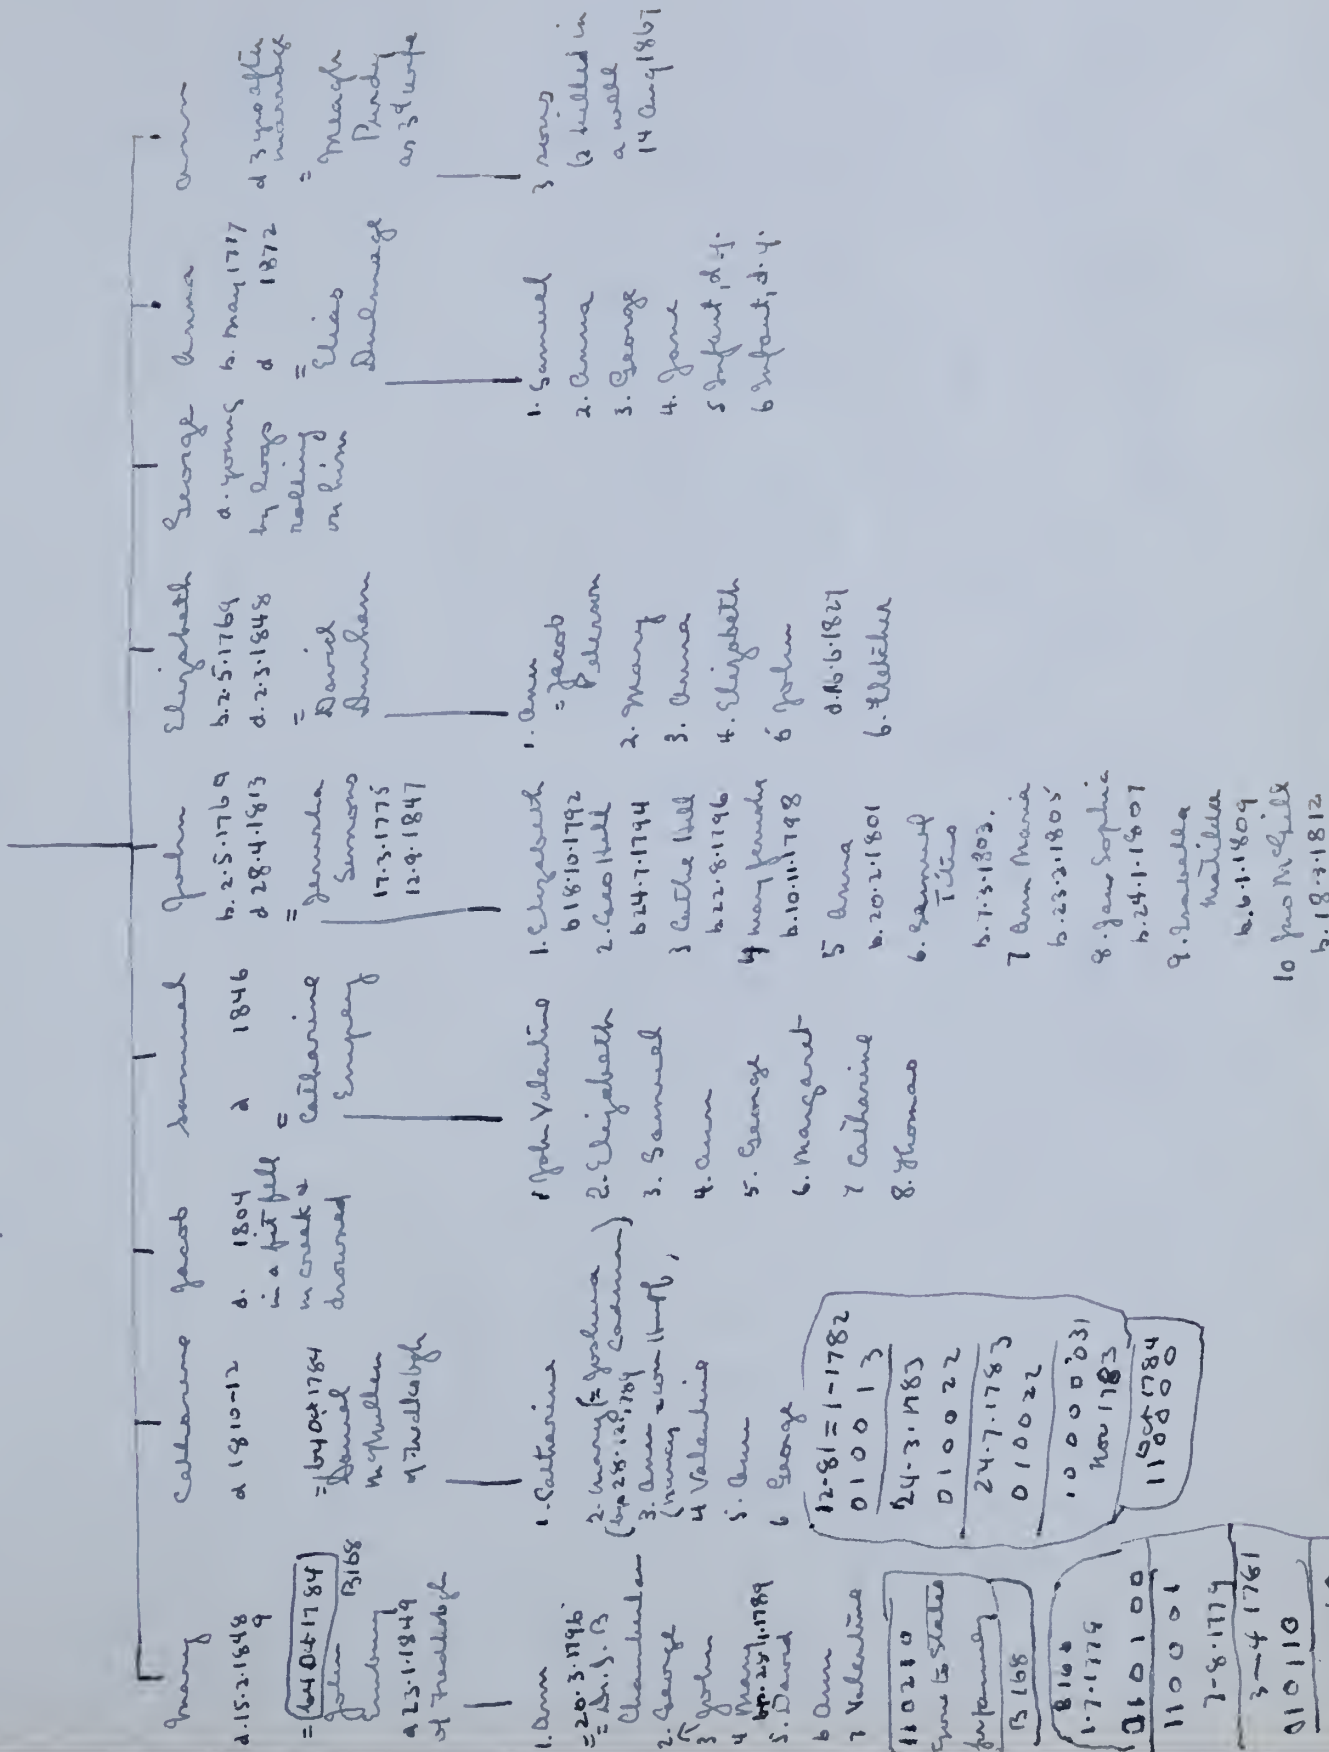 Mary
d. 15.2.1848
9
= b4 Oct 1784
John
Embury B168
d 23.1.1849
of Fredksbgh
1. Ann
= 20.3.1796
= Dr. S. B
Chamberlan
2. George
3 John
4 Mary
bp. 25.1.1789
5. David
6 Ann
7 Valentine
110210
Gone to States
for family
B 168
B168
1.7.1779
010100
110001
7-8.1779
3-4 1781
010110
Catharine
d 1810-12
= b4 Oct 1784
Daniel
McMullen
of Fredksbgh
1. Catharine
2. Mary (= Joshua
(bp 28.12.1789 Cadman)
3. Ann
4 Valentine
5. Ann
6 George
12-81=1-1782
010013
24-3.1783
010022
24.7.1783
010022
100031
Nov 1783
11 Oct 1784
110000
Jacob
d. 1804
in a fit fell
in creek &
drowned
Samuel
d 1846
=
Catharine
Empey
1 John Valentine
2. Elizabeth
3. Samuel
4. Ann
5. George
6. Margaret
7 Catharine
8. Thomas
John
b. 2.5.1769
d 28.4.1813
=
Jerusha
Semons
17.3.1775
12.9.1847
1. Elizabeth
b 18.10.1792
2. Hull
b 24.7.1794
3 Cathe Hull
b 22.8.1796
4 Mary
b. 10.11.1798
5 Anna
b. 20.2.1801
6. Samuel
Titus
b. 7.3.1803.
7 Ann Maria
b. 23.2.1805
8. Jane Sophia
b. 24.1.1807
9. Isabella
Matilda
b. 6.1.1809
10 Jno McGill
b. 18.3.1812
Elizabeth
b. 2.5.1769
d. 2.3.1848
=
David
Dunham
1. Ann
= Jacob
Peterson
2. Mary
3. Anna
4. Elizabeth
5 John
d. 16.6.1827
6. Fletcher
George
d. young
by logs
rolling
on him
Anna
b. May 1777
d 1872
=
Elias
Dulmage
1. Samuel
2. Anna
3. George
4. Jane
5 Infant, d.y.
6 Infant, d.y.
Ann
d 3 yrs after
marriage
=
Meagh
Purdy
as 3d wife
3 sons
(2 killed in
a well
14 Aug 1867